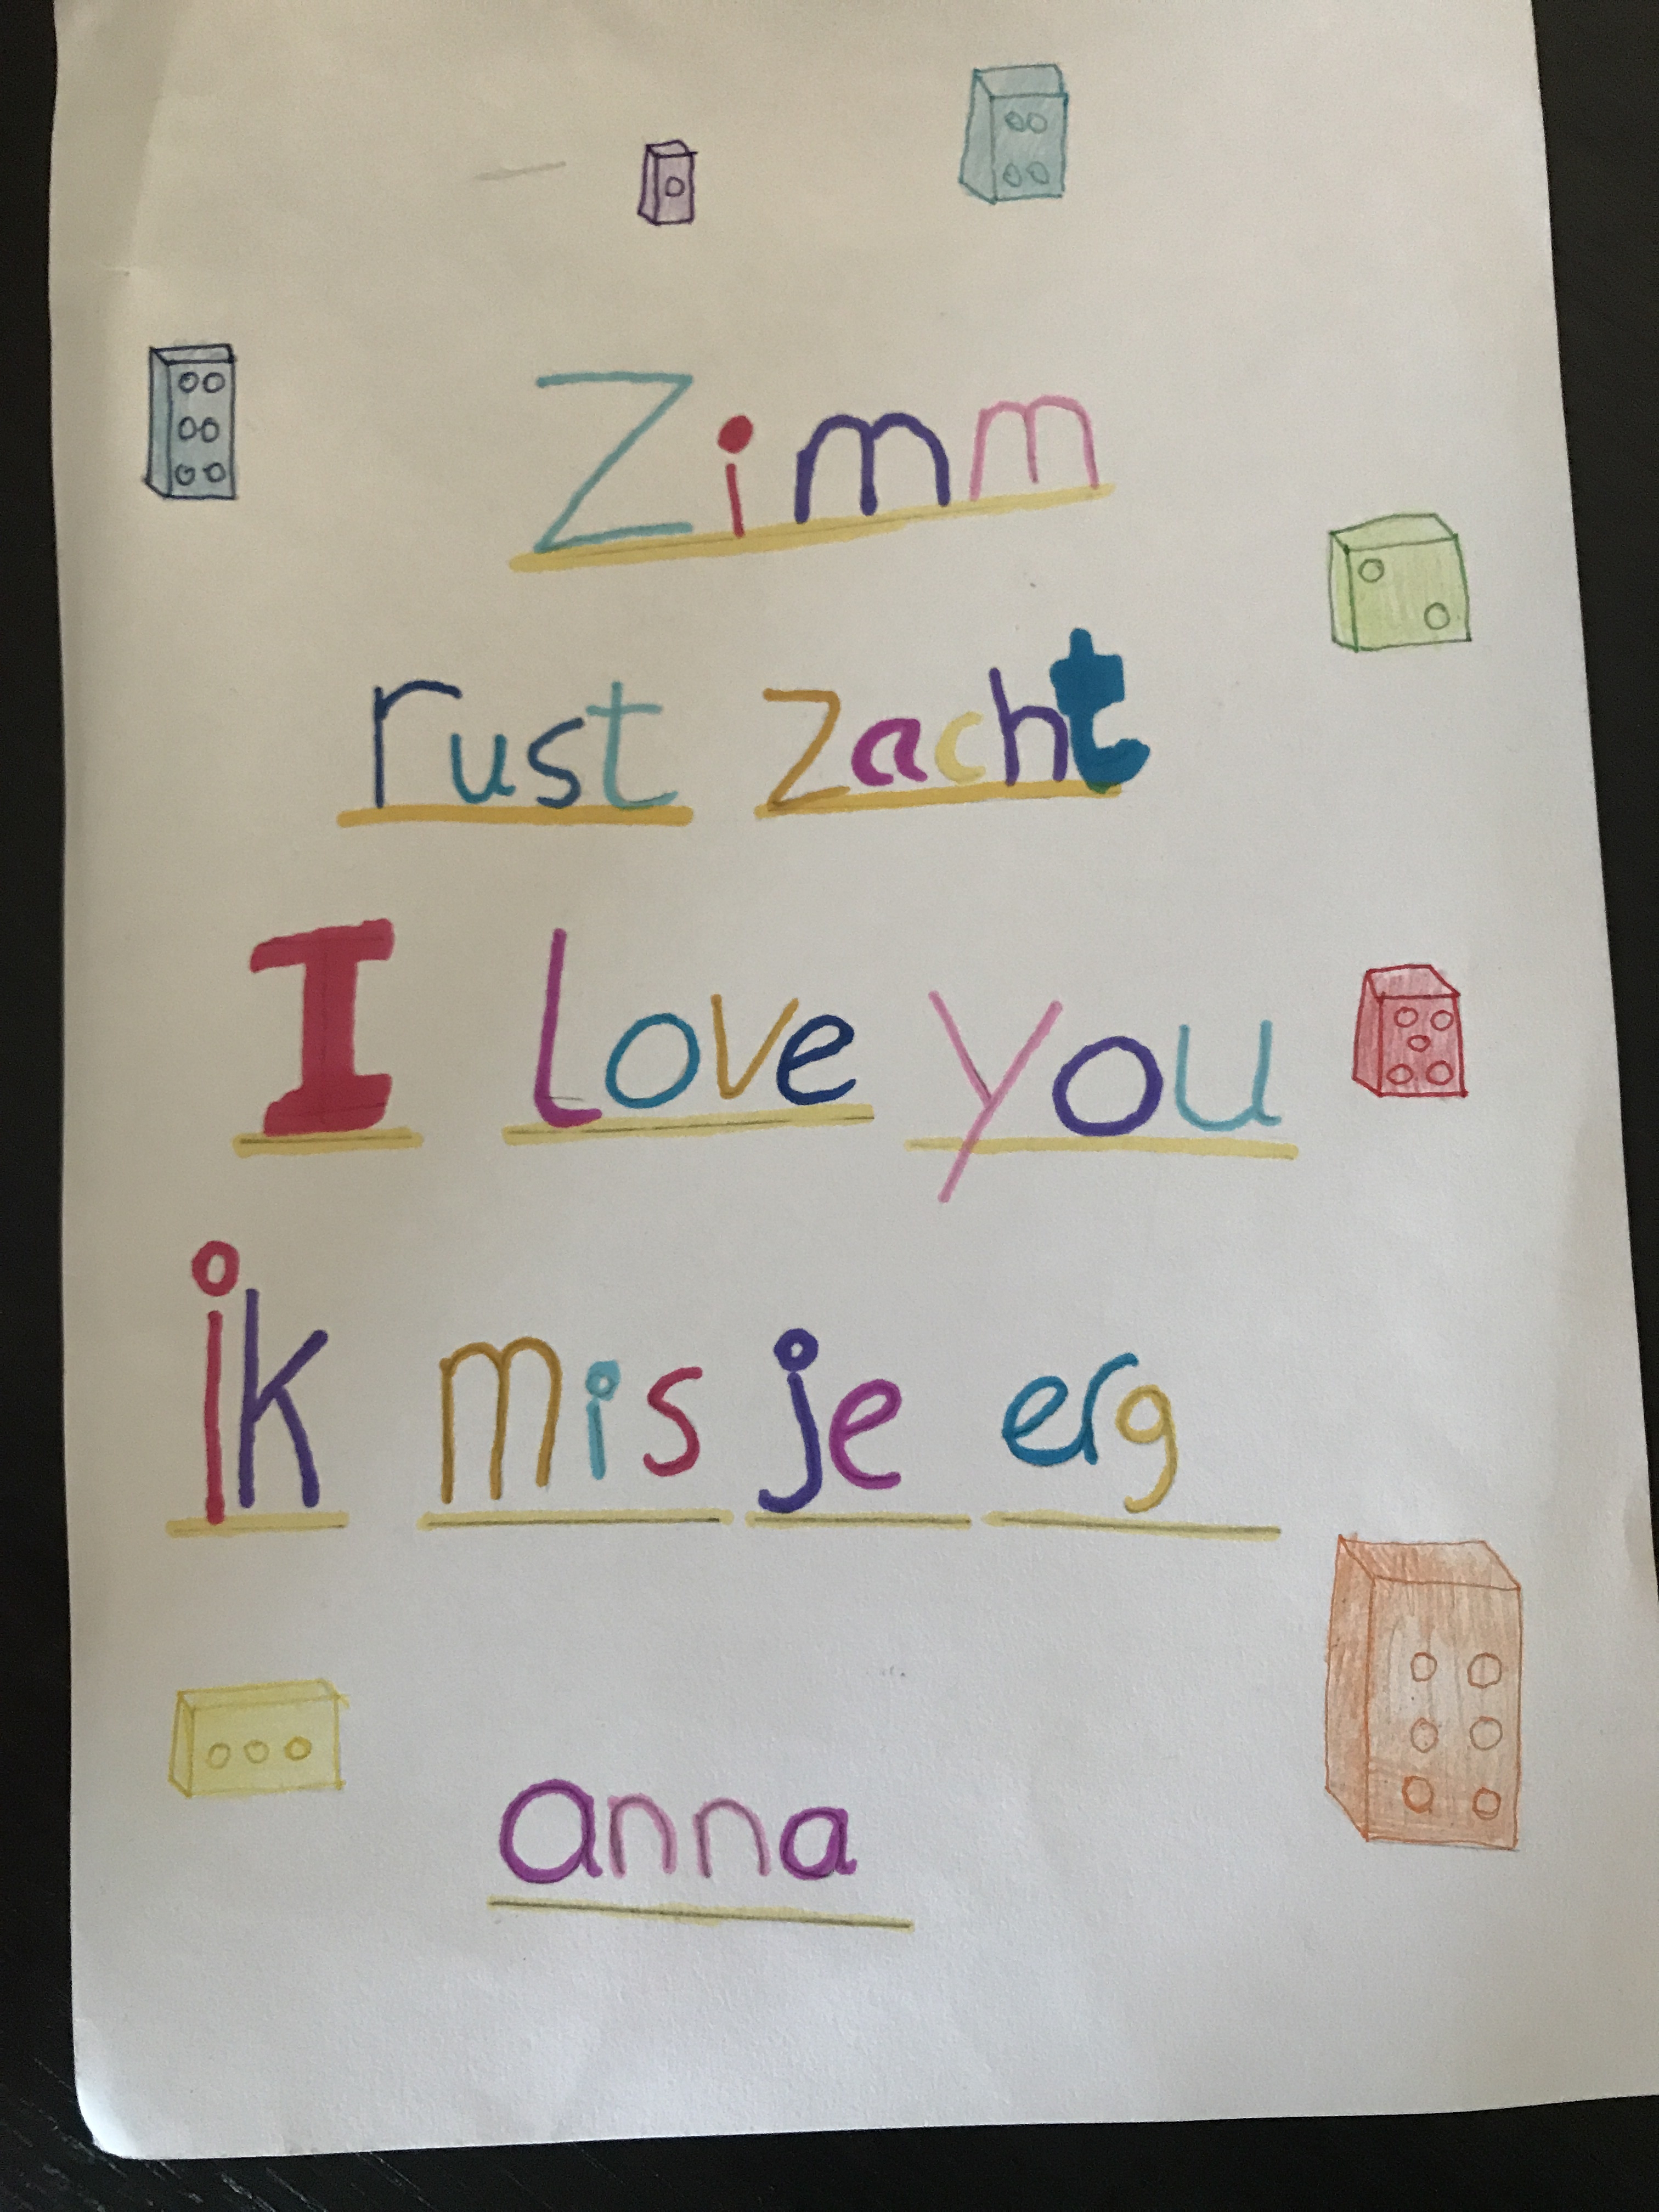 Zimm
rust zacht
I love you
ik mis je erg
anna